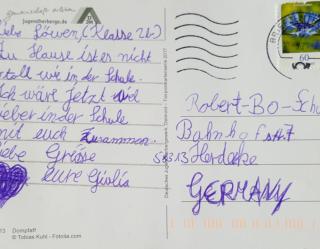 Jugendherberge.de
Liebe Löwen, (Klasse 2b)
Zu Hause ist es nicht
toll wie in der Schule.
Ich wäre jetzt viel
lieber in der Schule
mit euch zusammen.
Liebe Grüsse
eure Giulia
13 Dompfaff
© Tobias Kuhl - Fotolia.com
60
Robert-Bo-Sch
Bahnhofst.
58313 Herdecke
GERMANY